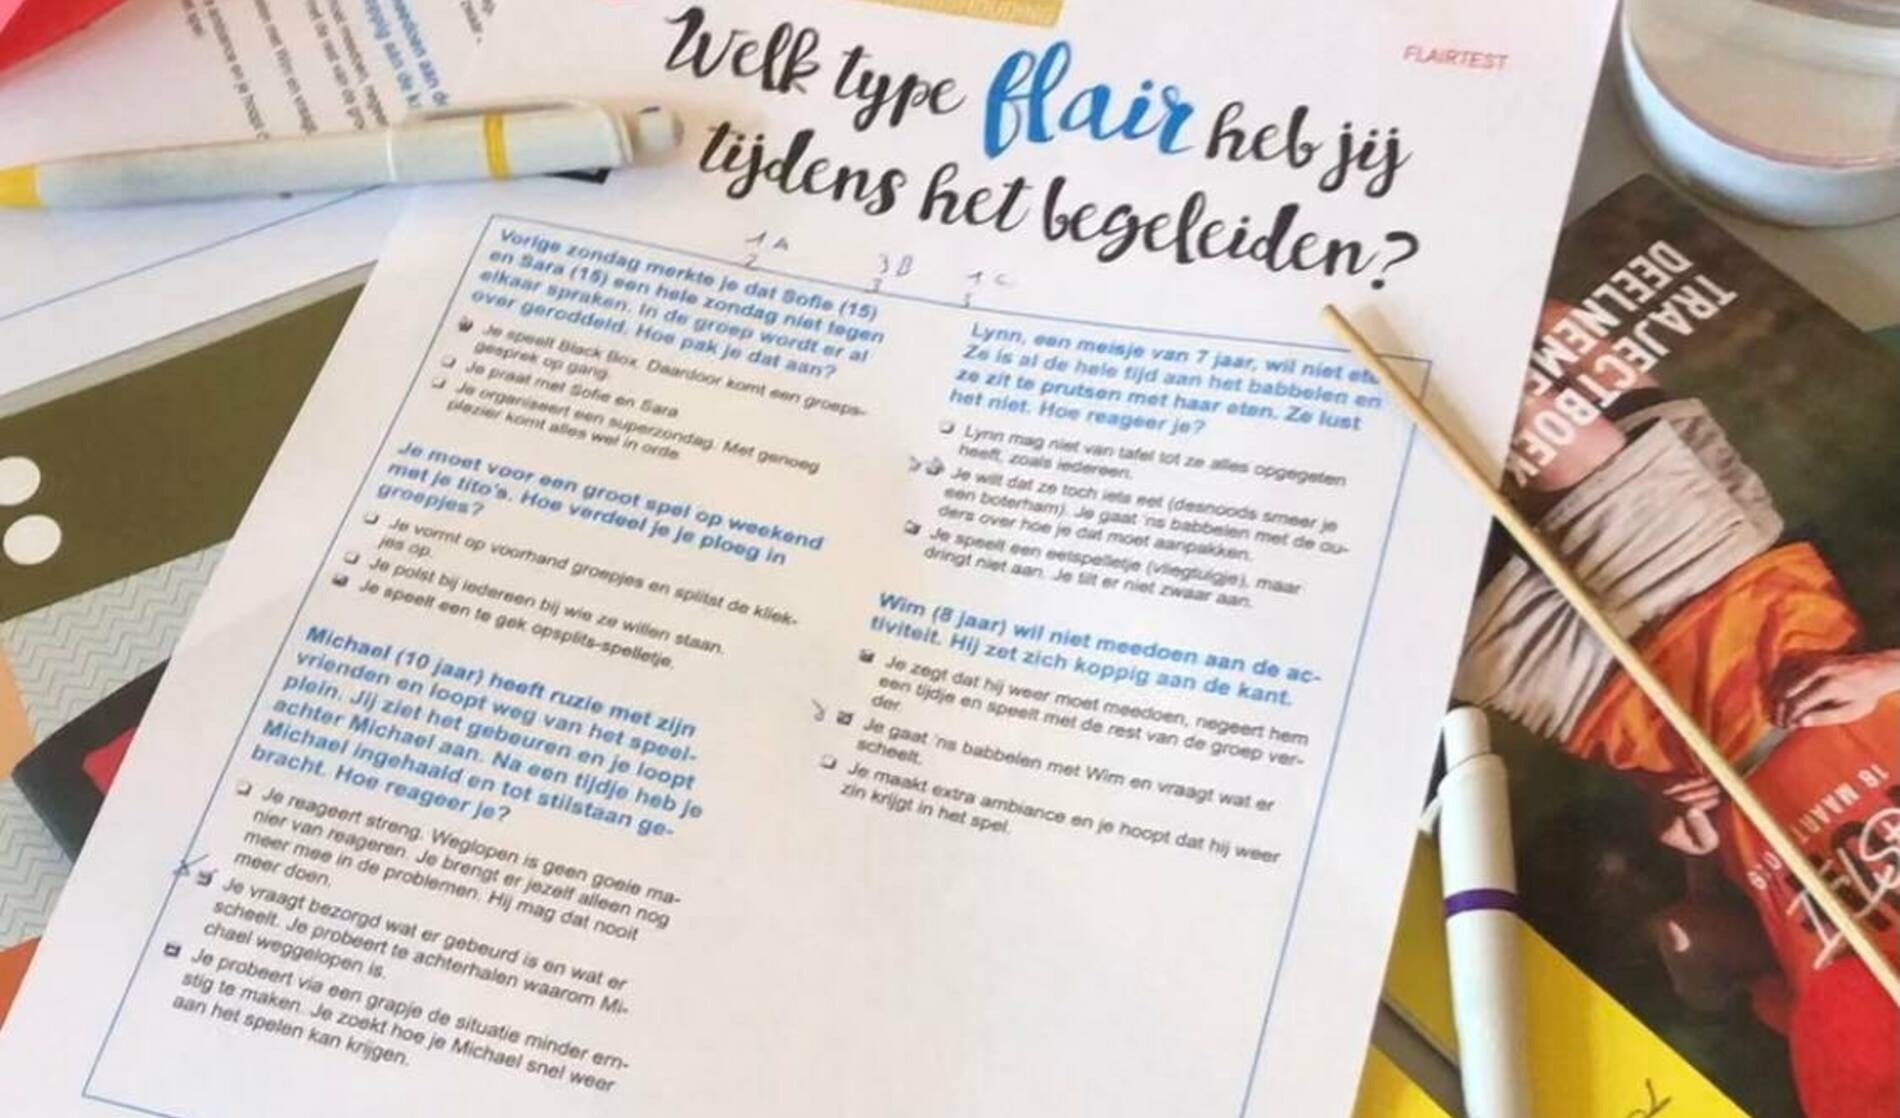 FLAIRTEST
Welk type flair heb jij
tijdens het begeleiden?
1A 3B 1C
2 3 3
Vorige zondag merkte je dat Sofie (15)
en Sara (15) een hele zondag niet tegen
elkaar spraken. In de groep wordt er al
over geroddeld. Hoe pak je dat aan?
Je speelt Black Box. Daardoor komt een groeps-
gesprek op gang.
Je praat met Sofie en Sara
Je organiseert een superzondag. Met genoeg
plezier komt alles wel in orde.
Je moet voor een groot spel op weekend
met je tito's. Hoe verdeel je je ploeg in
groepjes?
Je vormt op voorhand groepjes en splitst de kliek-
jes op.
Je polst bij iedereen bij wie ze willen staan.
Je speelt een te gek opsplits-spelletje.
Michael (10 jaar) heeft ruzie met zijn
vrienden en loopt weg van het speel-
plein. Jij ziet het gebeuren en je loopt
achter Michael aan. Na een tijdje heb je
Michael ingehaald en tot stilstaan ge-
bracht. Hoe reageer je?
Je reageert streng. Weglopen is geen goeie ma-
nier van reageren. Je brengt er jezelf alleen nog
meer mee in de problemen. Hij mag dat nooit
meer doen.
Je vraagt bezorgd wat er gebeurd is en wat er
scheelt. Je probeert te achterhalen waarom Mi-
chael weggelopen is.
Je probeert via een grapje de situatie minder ern-
stig te maken. Je zoekt hoe je Michael snel weer
aan het spelen kan krijgen.
Lynn, een meisje van 7 jaar, wil niet
Ze is al de hele tijd aan het babbelen en
ze zit te prutsen met haar eten. Ze lust
het niet. Hoe reageer je?
Lynn mag niet van tafel tot ze alles opgegeten
heeft, zoals iedereen.
Je wilt dat ze toch iets eet (desnoods smeer je
een boterham). Je gaat 'ns babbelen met de ou-
ders over hoe je dat moet aanpakken.
Je speelt een eetspelletje (vliegtuigje), maar
dringt niet aan. Je tilt er niet zwaar aan.
Wim (8 jaar) wil niet meedoen aan de ac-
tiviteit. Hij zet zich koppig aan de kant.
Je zegt dat hij weer moet meedoen, negeert hem
een tijdje en speelt met de rest van de groep ver-
der.
Je gaat 'ns babbelen met Wim en vraagt wat er
scheelt.
Je maakt extra ambiance en je hoopt dat hij weer
zin krijgt in het spel.
TRAJECTBOEK